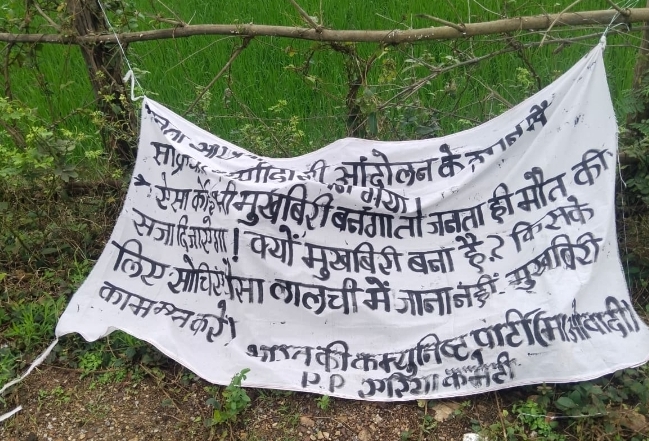 जनता
आंदोलन के
गया!
ऐसा कोई भी मुखबिरी बनेगा तो जनता ही मौत की
सजा दि जाएगा! क्यों मुखबिरी बना है? किसके
लिए सोचिए पैसा लालची में जाना नहीं मुखबिरी
काम मत करें।
भारत की कम्युनिष्ट पार्टी (माओवादी)
एरिया कमेटी